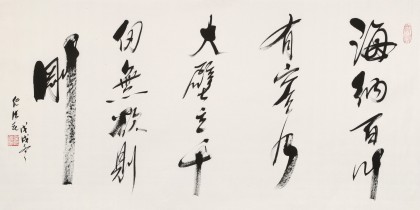 海納百川
有容乃
大壁立千
仞無欲則
剛
戊戌